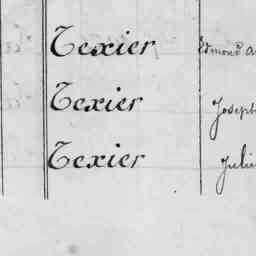 Texier Edmond
Texier Joseph
Texier